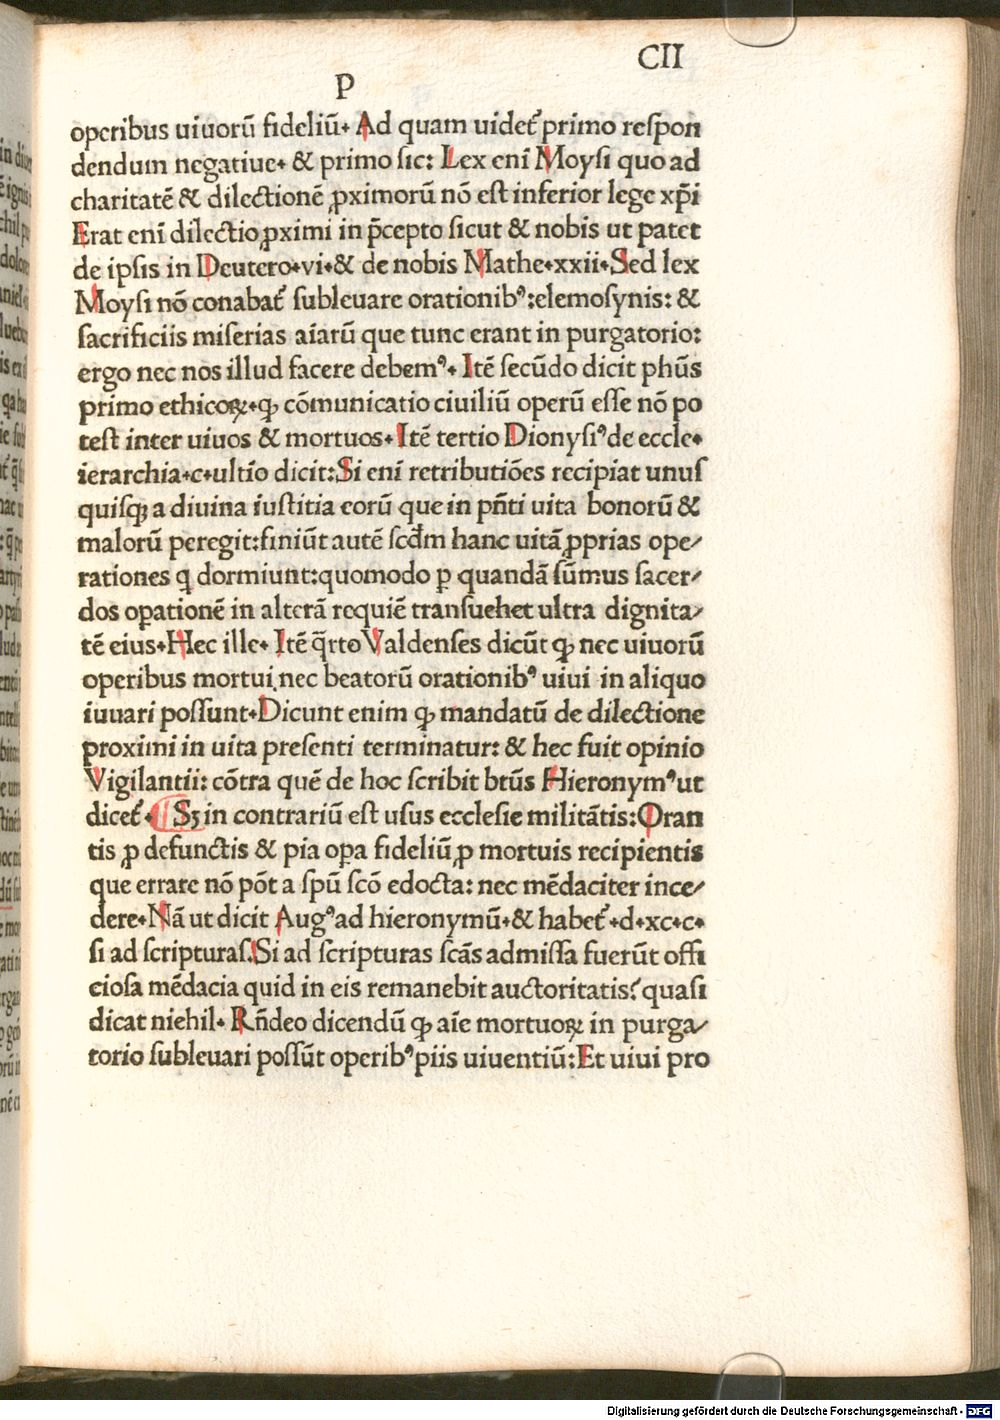 CII
P
operibus uiuorū fideliū. Ad quam uidet᷑ primo respon
dendum negatiue. & primo sic: Lex enī Moysi quo ad
charitatē & dilectionē ꝓximorū nō est inferior lege xp̄i
Erat enī dilectio ꝓximi in p̄cepto sicut & nobis ut patet
de ipsis in Deutero.vi.& de nobis Mathe.xxii.Sed lex
Moysi nō conabat᷑ subleuare orationibꝰ:elemosynis: &
sacrificiis miserias aīarū que tunc erant in purgatorio:
ergo nec nos illud facere debemꝰ. Itē secūdo dicit phūs
primo ethicoꝝ.ꝙ cōmunicatio ciuiliū operū esse nō po
test inter uiuos & mortuos. Itē tertio Dionysiꝰ de eccle.
ierarchia.c.ultīo dicit:Si enī retributiōes recipiat unus
quisqꝫ a diuina iustitia eorū que in pn̄ti uita bonorū &
malorū peregit:finiūt autē scdm̄ hanc uitā ꝓprias ope/
rationes q̨ dormiunt:quomodo ꝑ quandā sūmus sacer/
dos oꝑationē in alterā requiē transuehet ultra dignita/
tē eius.Hec ille. Itē q̄rto Valdenses dicūt ꝙ nec uiuorū
operibus mortui,nec beatorū orationibꝰ uiui in aliquo
iuuari possunt.Dicunt enim ꝙ mandatū de dilectione
proximi in uita presenti terminatur: & hec fuit opinio
Vigilantii: cōtra quē de hoc scribit btūs Hieronymꝰ ut
dicet᷑. Sꝫ in contrariū est usus ecclesie militātis:Oran
tis ꝓ defunctis & pia oꝑa fideliū ꝓ mortuis recipientis
que errare nō pōt a spū scō edocta: nec mēdaciter ince/
dere.Nā ut dicit Augꝰ ad hieronymū.& habet᷑ .d.xc.c.
si ad scripturas.Si ad scripturas scās admissa fuerūt offi
ciosa mēdacia quid in eis remanebit auctoritatis? quasi
dicat niehil. Rn̄deo dicendū ꝙ aīe mortuoꝝ in purga/
torio subleuari possūt operibꝰ piis uiuentiū:Et uiui pro
Digitalisierung gefördert durch die Deutsche Forschungsgemeinschaft - DFG